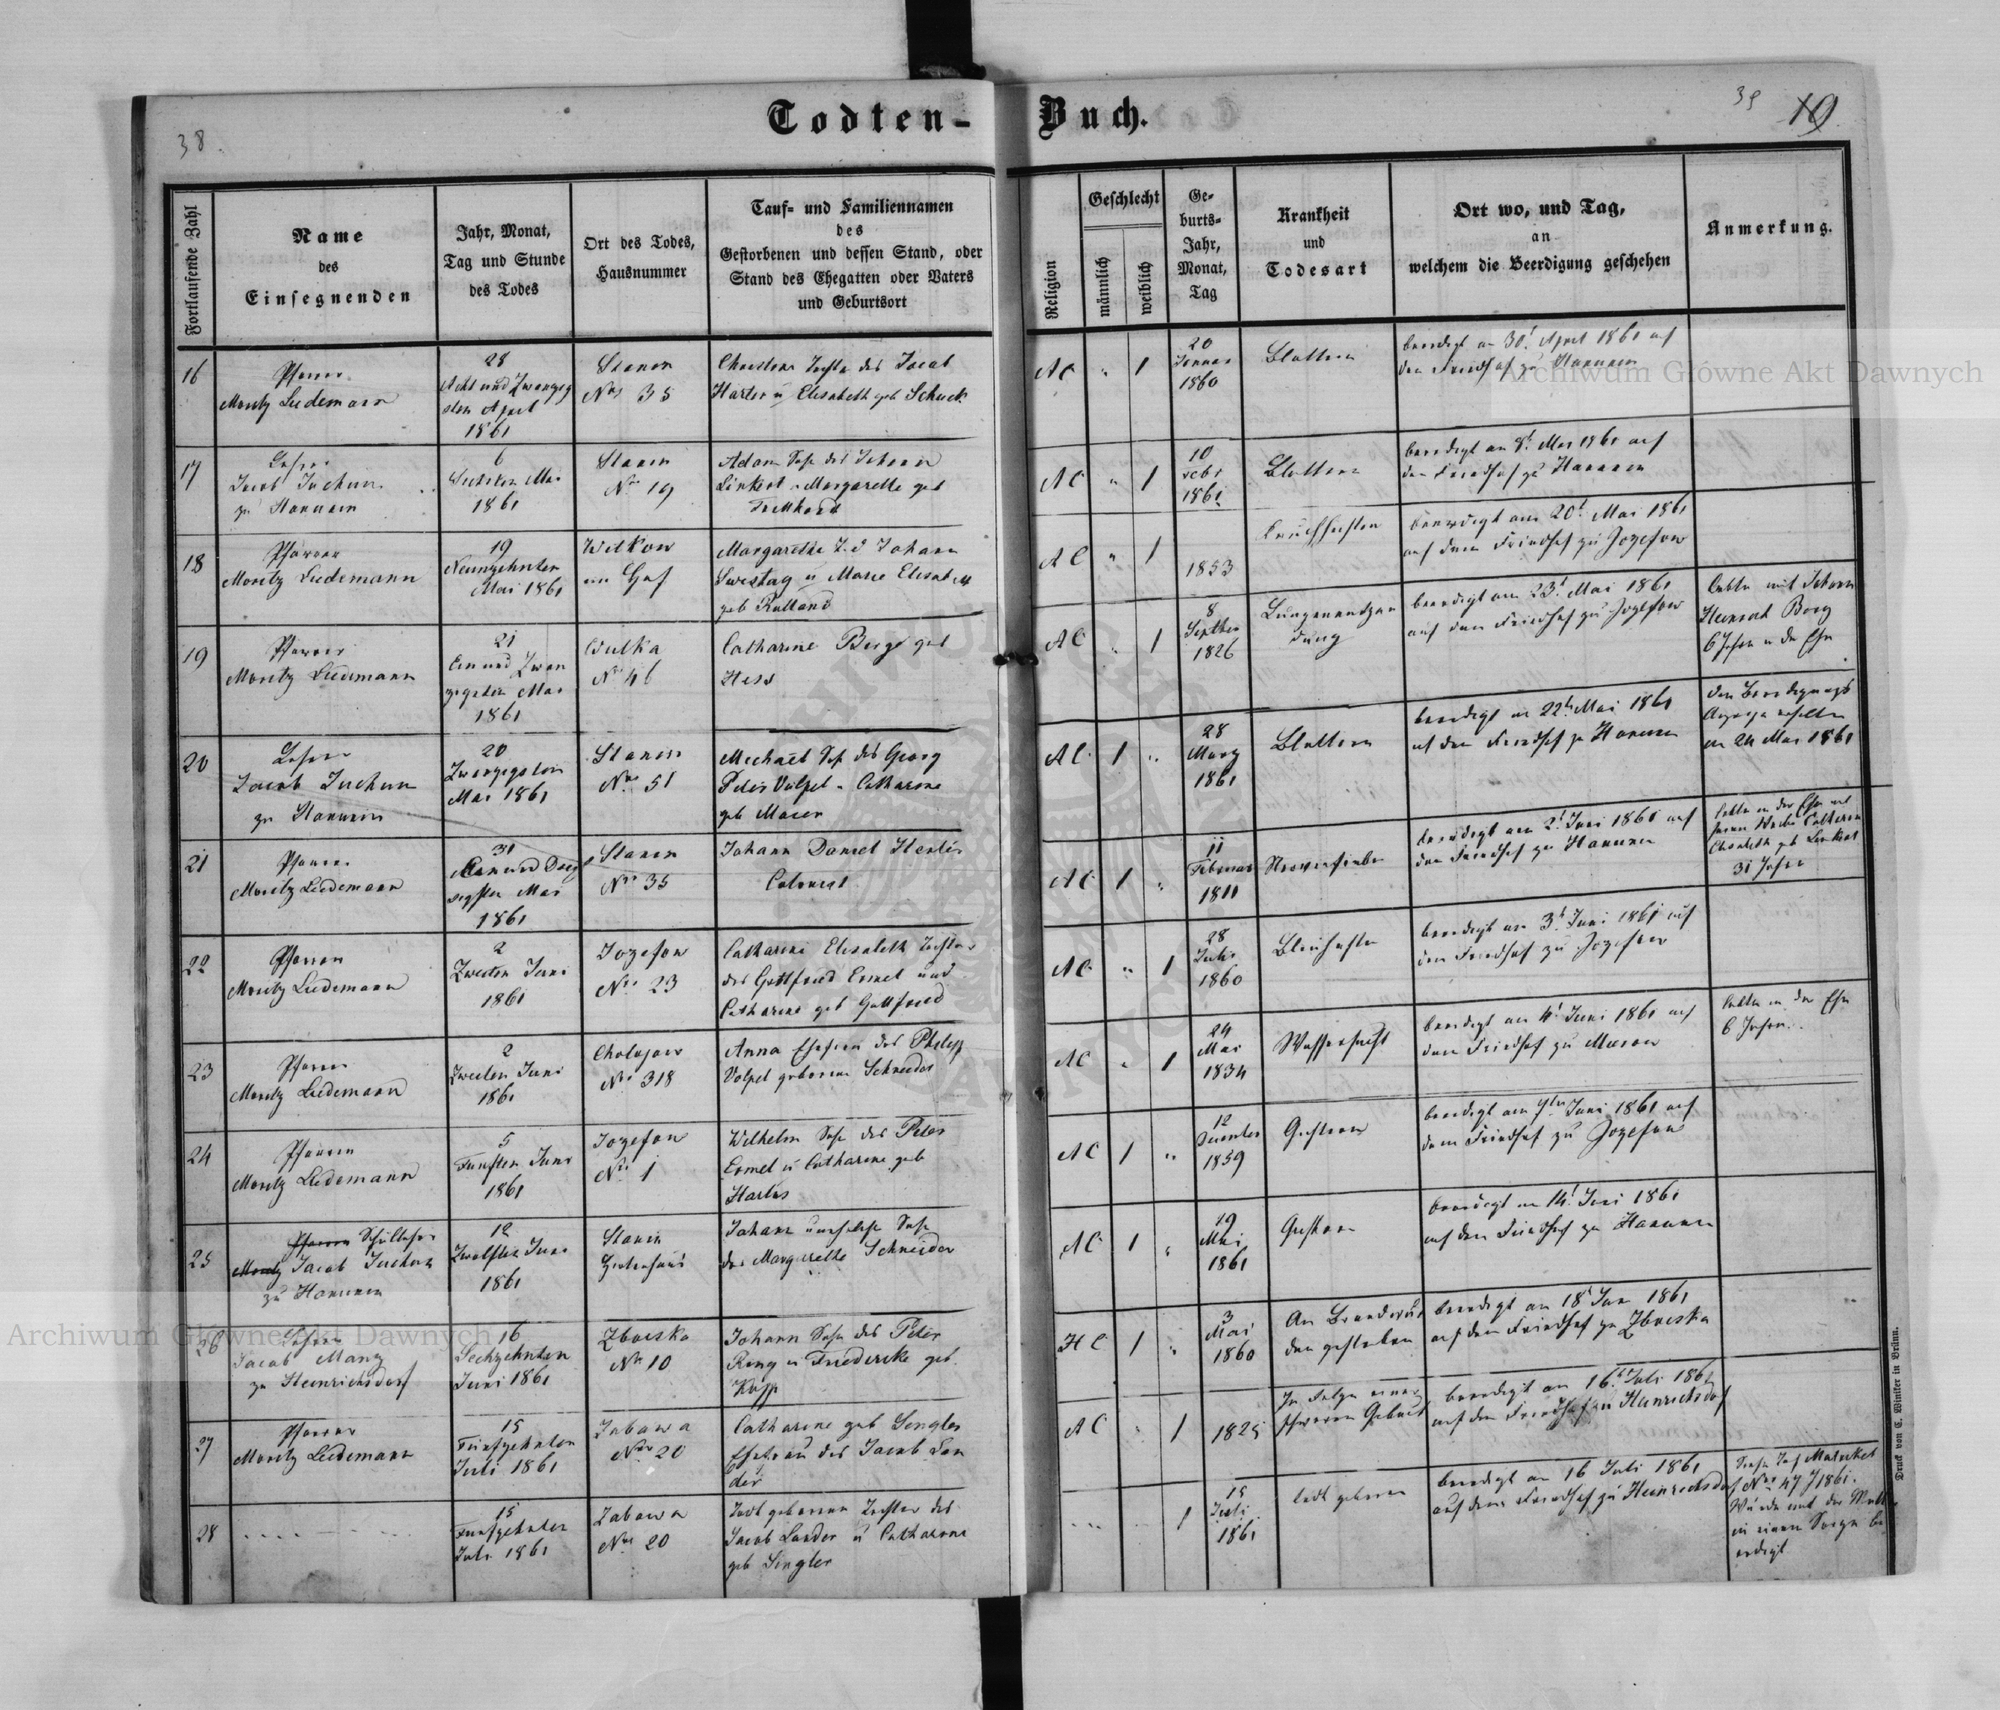 Todten-Buch.
38
39
19
Fortlaufende Zahl
Name
des
Einsegnenden
Jahr, Monat,
Tag und Stunde
des Todes
Ort des Todes,
Hausnummer
Tauf- und Familiennamen
des
Gestorbenen und dessen Stand, oder
Stand des Ehegatten oder Vaters
und Geburtsort
Religion
Geschlecht
männlich
weiblich
Ge-
burts-
Jahr,
Monat,
Tag
Krankheit
und
Todesart
Ort wo, und Tag,
an
welchem die Beerdigung geschehen
Anmerkung.
16
Pfarrer
Moritz Ludemann
28
Acht und Zwanzig
sten April
1861
Stanin
Nro 35
Christine Tochter des Jacob
Harter u Elisabeth geb Schuck
AC " 1
20
Januar
1860
Blattern
beerdigt am 30t April 1861 auf
den Friedhof zu Hanunin
17
Lehrer
Jacob Juchum
zu Hanunin
6
Sechsten Mai
1861
Stanin
Nro 19
Adam Sohn des Johann
Linkert u Margarethe geb
AC " 1
10
Febr
1861
Blattern
beerdigt am 8t Mai 1861 auf
den Friedhof zu Hanunin
18
Pfarrer
Moritz Ludemann
19
Neunzehnten
Mai 1861
Witkow
im Hof
Margarethe T. d Johann
Swestag u Marie Elisabeth
geb Rulland
AC " 1
1853
beerdigt am 20t Mai 1861
auf dem Friedhof zu Jozefow
19
Pfarrer
Moritz Ludemann
21
Ein und Zwan
zigsten Mai
1861
Wulka
Nro 46
Catharine Berg geb
Hess
AC " 1
8
Septber
1826
Lungenentzün
dung
beerdigt am 23t Mai 1861
auf dem Friedhof zu Jozefow
lebte mit Johann
Heinrich Berg
6 Jahre in der Ehe
20
Lehrer
Jacob Juchum
zu Hanunin
20
Zwanzigsten
Mai 1861
Stanin
Nro 51
Michael Sohn des Georg
Peter Volpel u Catharine
geb Mauer
AC 1 "
28
März
1861
Blattern
beerdigt am 22t Mai 1861
auf dem Friedhof zu Hanunin
den Beerdigungs
am 24 Mai 1861
21
Pfarrer
Moritz Ludemann
31
Ein und Drei
sigsten Mai
1861
Stanin
Nro 35
Johann Daniel Harter
Colonist
AC 1 "
11
Februar
1811
Nervenfieber
beerdigt am 2t Juni 1861 auf
den Friedhof zu Hanunin
lebte in der Ehe mit
31 Jahre
22
Pfarrer
Moritz Ludemann
2
Zweiten Juni
1861
Jozefow
Nro 23
Catharine Elisabeth Tochter
des Gottfried Ermel und
Catharine geb Gottfried
AC " 1
28
Juli
1860
beerdigt am 3t Juni 1861 auf
den Friedhof zu Jozefow
23
Pfarrer
Moritz Ludemann
2
Zweiten Juni
1861
Cholojow
Nro 318
Anna Ehefrau des Philipp
Volpel geborene Schneider
AC " 1
24
Mai
1834
Wassersucht
beerdigt am 4t Juni 1861 auf
dem Friedhof zu Mierow
lebte in der Ehe
6 Jahre.
24
Pfarrer
Moritz Ludemann
5
Fünften Juni
1861
Jozefow
Nro 1
Wilhelm Sohn des Peter
Ermel u Catharine geb
Harles
AC 1 "
12
Dezember
1859
beerdigt am 7ten Juni 1861 auf
dem Friedhof zu Jozefow
25
Pfarrer Schullehrer
Moritz Jacob Juchum
zu Hanunin
12
Zwölften Juni
1861
Stanin
Johann unehelich Sohn
der Margarethe Schneider
AC 1 "
19
Mai
1861
beerdigt am 14t Juni 1861
auf den Friedhof zu Hanunin
26
Lehrer
Jacob Manz
zu Heinrichsdorf
16
Sechzehnten
Juni 1861
Zboiska
Nro 10
Johann Sohn des Peter
Ring u Friedericke geb.
Kopp
HC 1 "
3
Mai
1860
beerdigt am 18t Juni 1861
auf dem Friedhof zu Zboiska
27
Pfarrer
Moritz Ludemann
15
Fünfzehnten
Juli 1861
Zabawa
Nro 20
Catharine geb Singler
Ehefrau des Jacob Lan
der
AC " 1
1825
In Folge einer
schweren Geburt
beerdigt am 16t Juli 1861
auf dem Friedhof zu Heinrichsdorf
28
15
Fünfzehnten
Juli 1861
Zabawa
Nro 20
Todt geborene Tochter des
Jacob Lander u Catharine
geb Singler
1
15
Juli
1861
todt geboren
beerdigt am 16 Juli 1861
auf dem Friedhof zu Heinrichsdorf
Siehe Taf Matrikel
Nro 47 J 1861.
Wurde mit der Mutter
in einem Sarge be
erdigt
Druck von C. Winiker in Brünn.
Archiwum Główne Akt Dawnych
Archiwum Główne Akt Dawnych